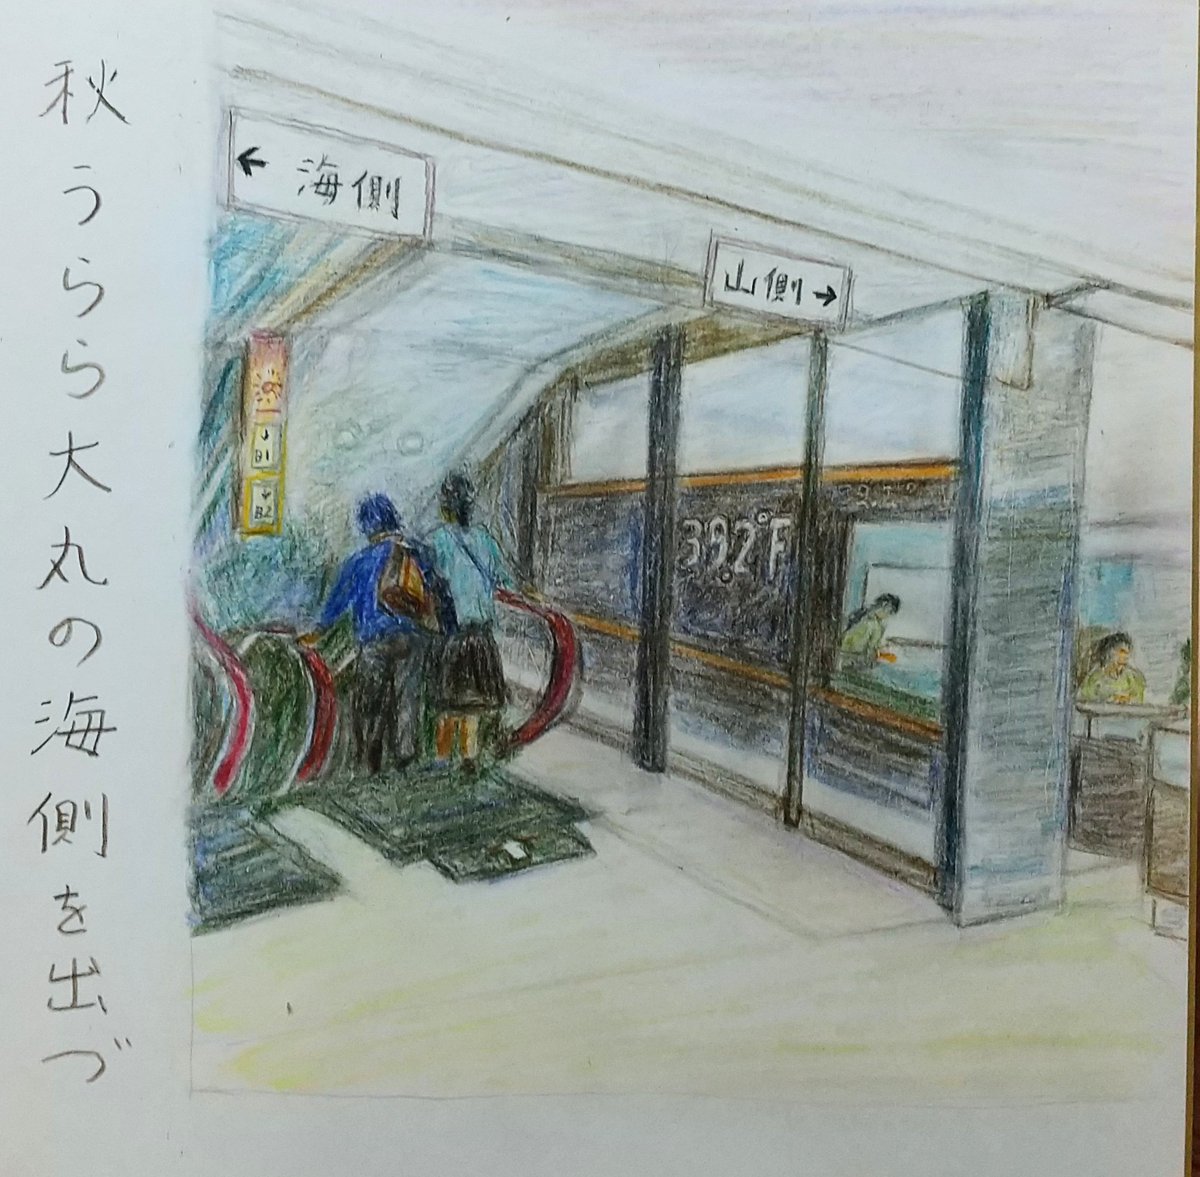 秋うらら大丸の海側を出づ
← 海側
山側 →
↓B1
↓B2
39.2°F